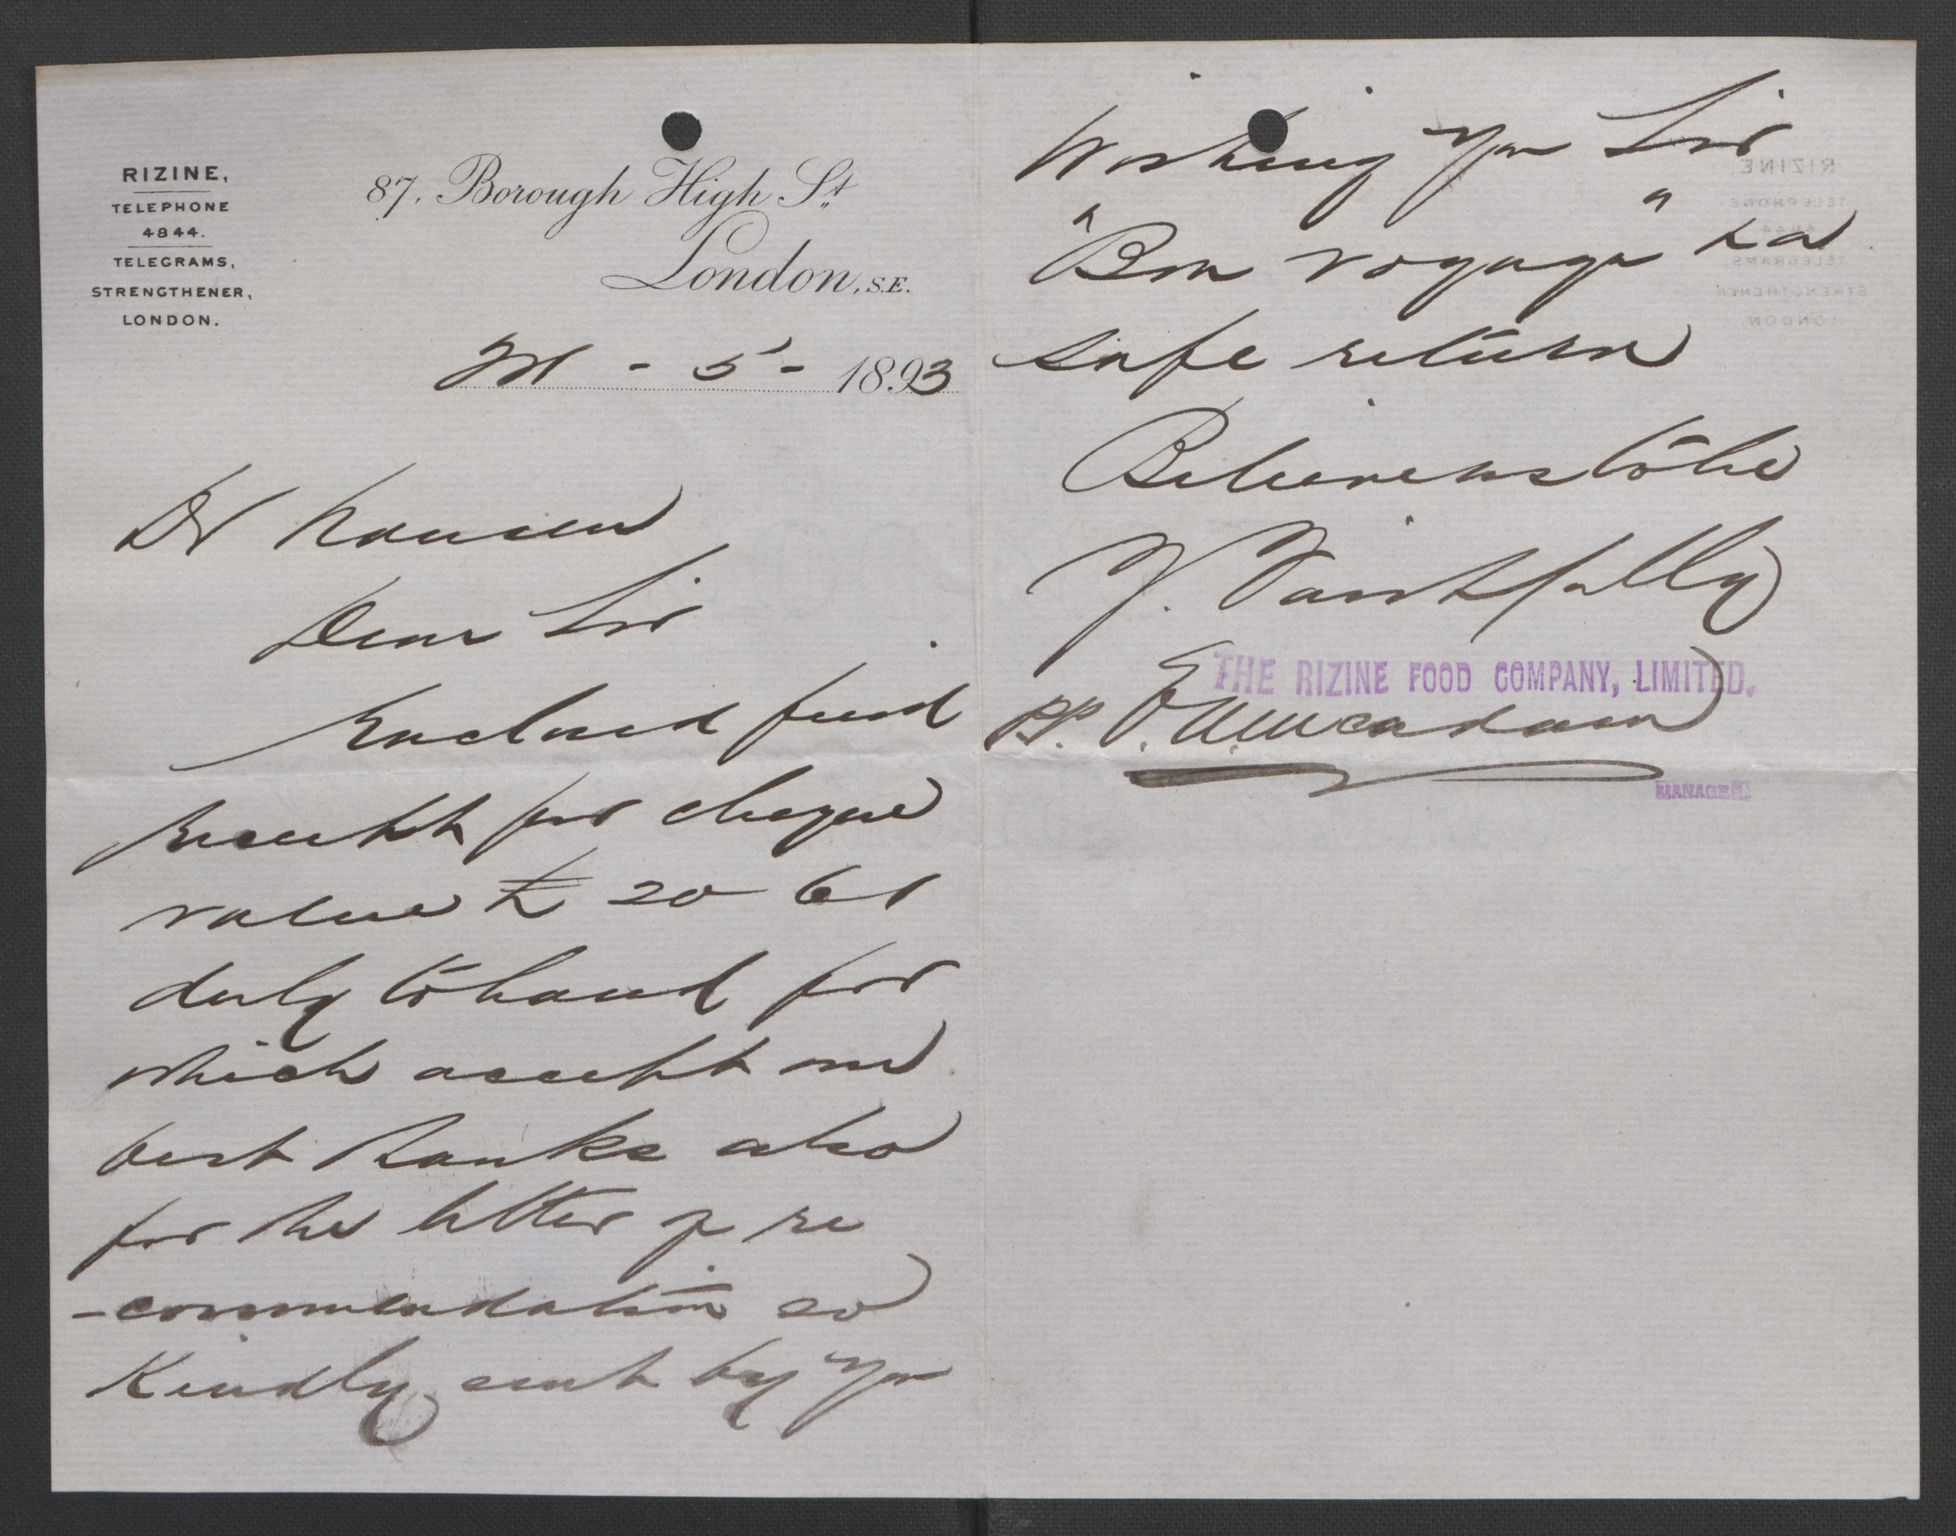 RIZINE,
TELEPHONE
4844.
TELEGRAMS,
STRENGTHENER,
LONDON.
87, Borough High St.
London, S.E.
- 5 - 1893
Dr Nansen
Dear Sir
Enclosed find
receipt for cheque
value £ 20
duly to hand for
which accept our
best thanks also
for the letter of re
-commendation so
kindly sent by you
Wishing you Sir
"Bon voyage" & a
safe return
Believe us to be
Y. Faithfully
THE RIZINE FOOD COMPANY, LIMITED.
pp.
MANAGER.